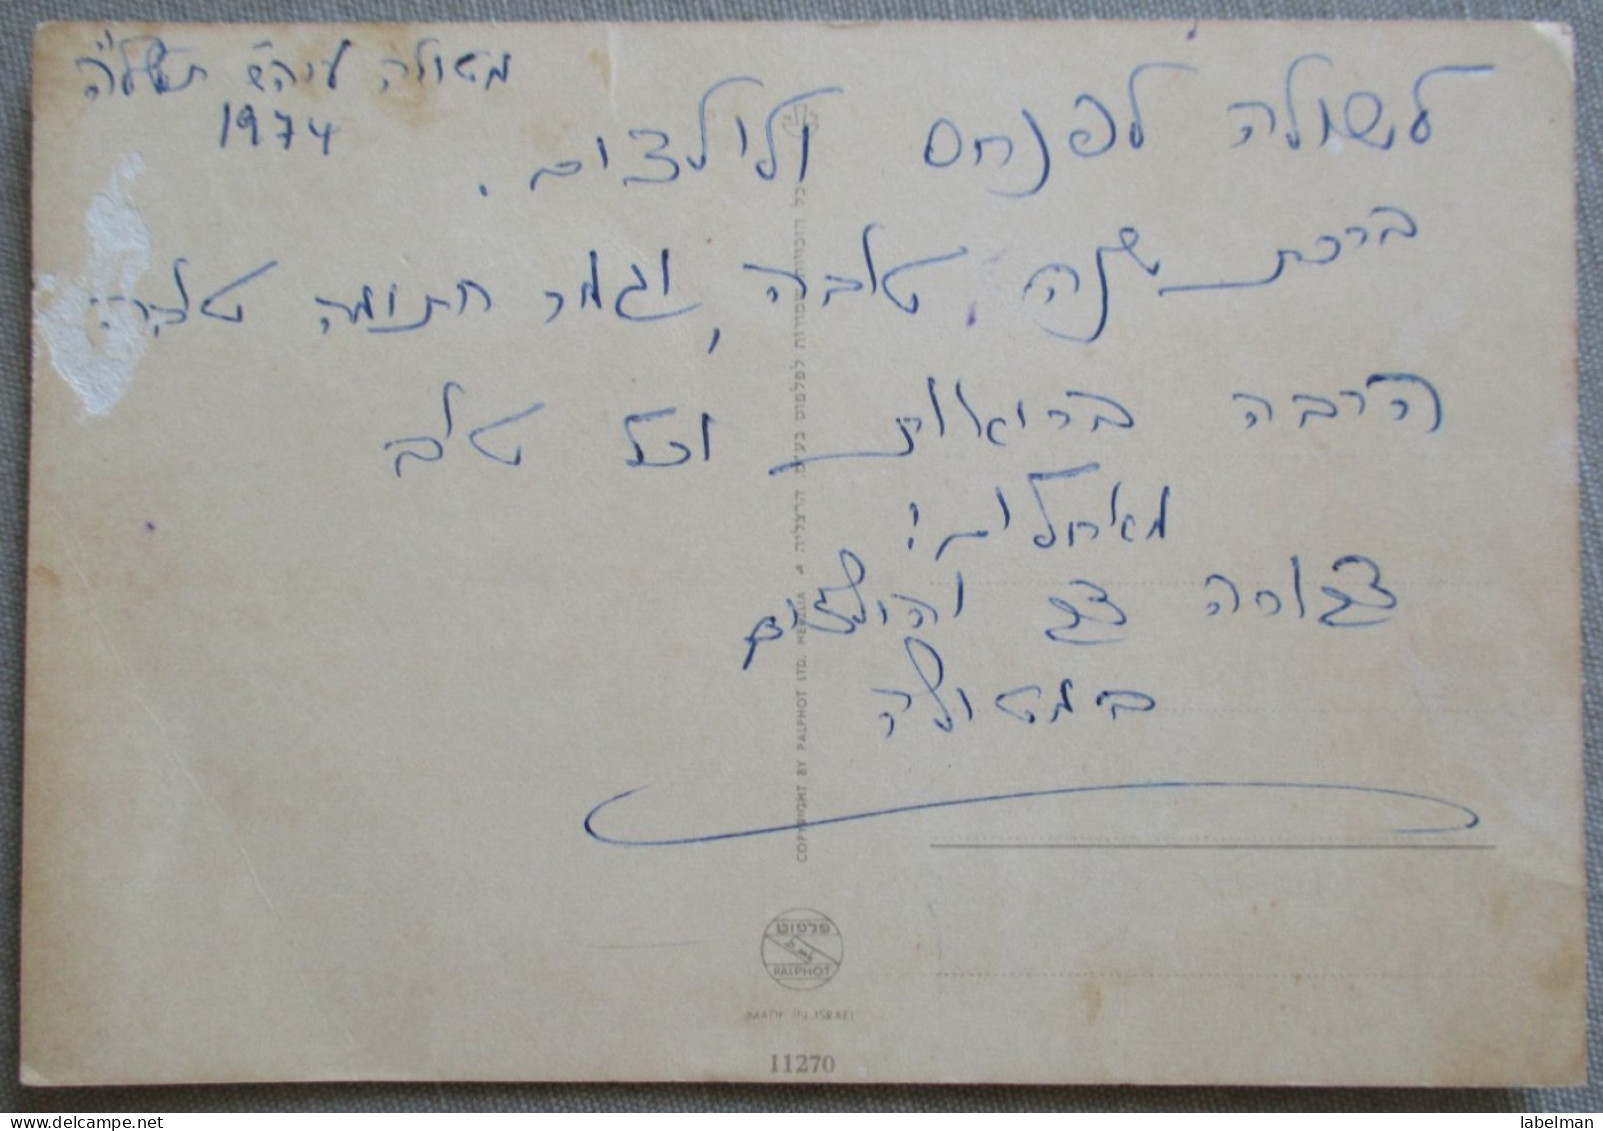 מטולה תשל"ה
1974
לשולה לפנחס ולילדים.
ברכת שנה טובה, וגמר חתימה טובה
הרבה בריאות וכל טוב
מאחלים:
צב
במטולה
COPYRIGHT BY PALPHOT LTD. HERZLIA כל הזכויות שמורות לפלפוט בע"מ. הרצליה
פלפוט
PALPHOT
MADE IN ISRAEL
11270
labelman
www.delcampe.net